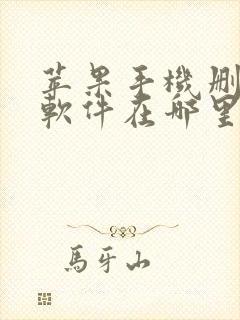 苹果手機刪
軟件在哪里
馬牙山